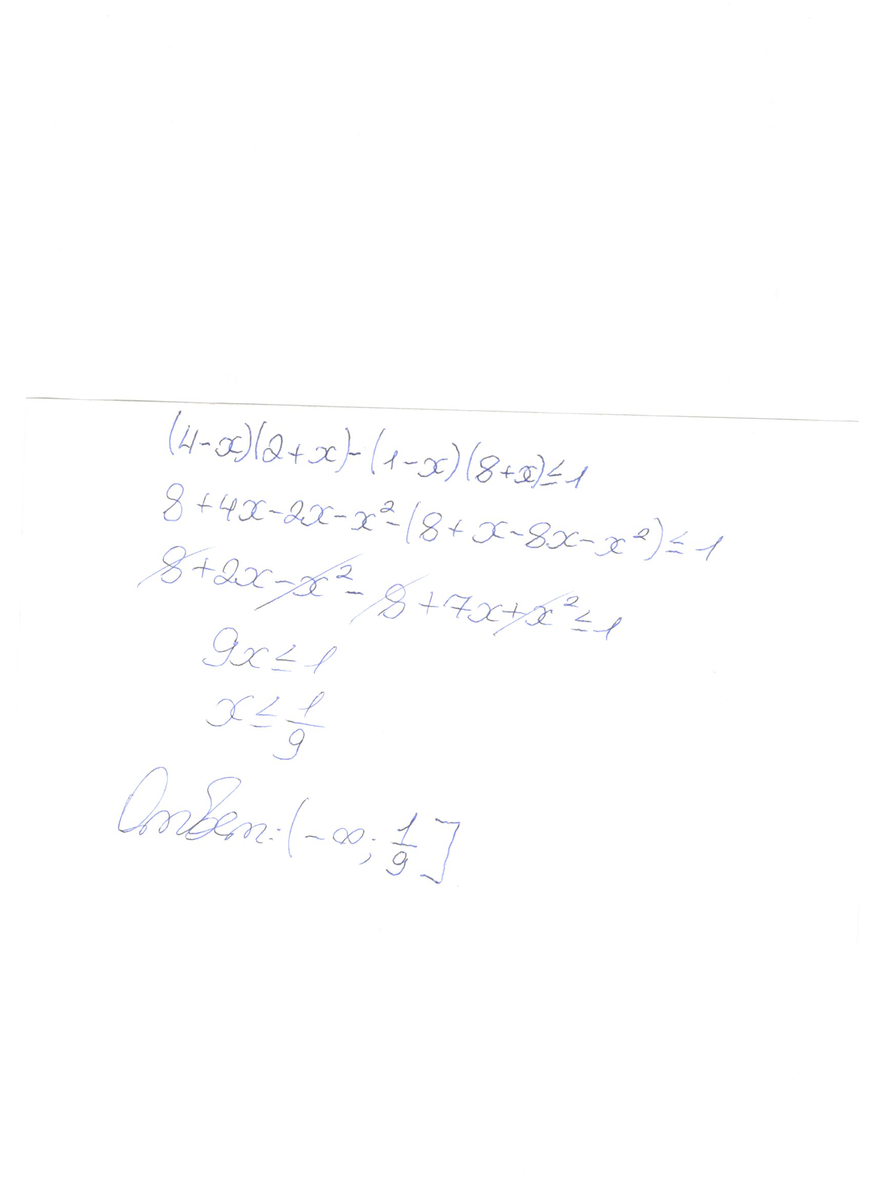 (4-x)(2+x)-(1-x)(8+x)≤1
8+4x-2x-x²-(8+x-8x-x²)≤1
8+2x-x²-8+7x+x²≤1
9x≤1
x≤1/9
Ответ: (-∞; 1/9]